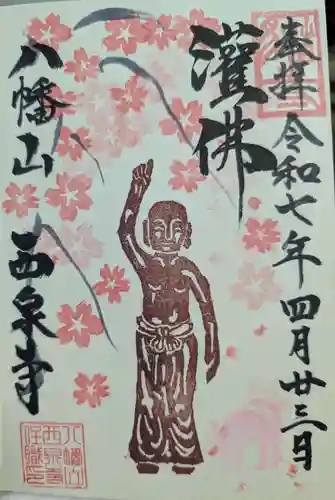 奉拝
令和七年四月廿三日
灌佛
八幡山
西泉寺
八幡山
西泉寺
住職印